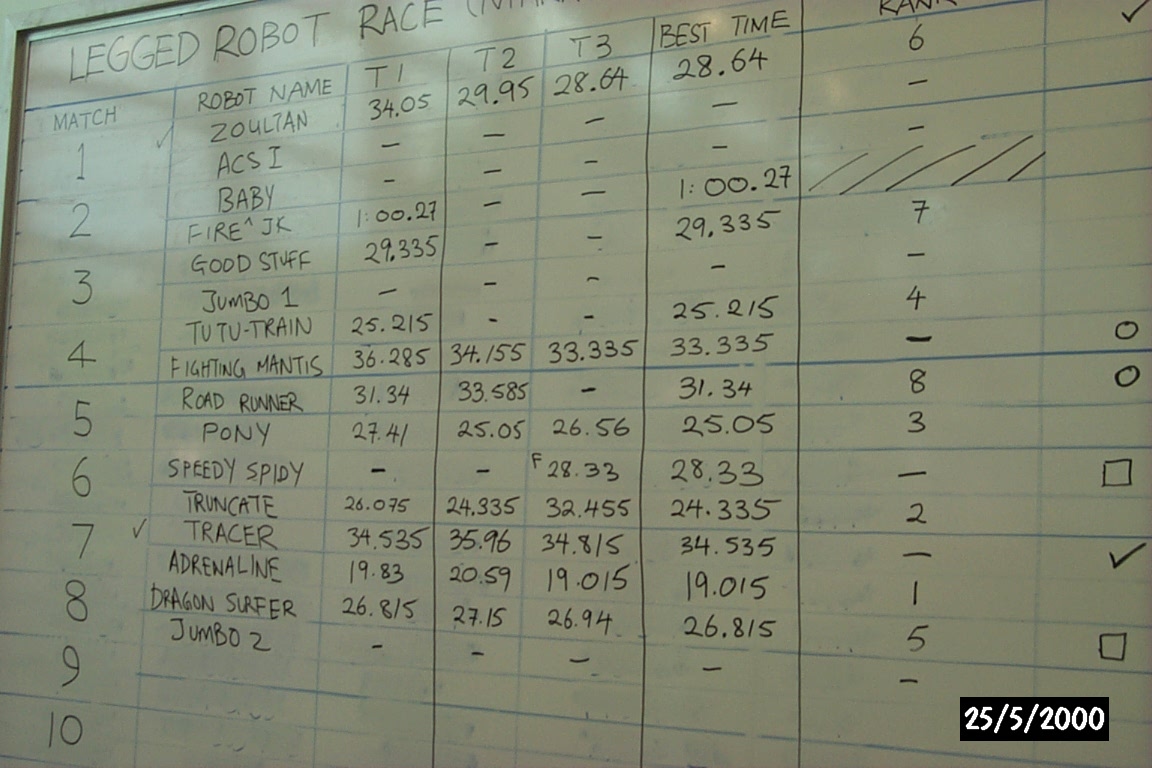 LEGGED ROBOT RACE
MATCH ROBOT NAME T1 T2 T3 BEST TIME RANK
1 ZOULTAN 34.05 29.95 28.64 28.64 6 ✓
ACS I - - - - -
2 BABY - - - - -
FIRE^JK 1:00.27 - - 1:00.27
3 GOOD STUFF 29.335 - - 29.335 7
JUMBO 1 - - - - -
4 TUTU-TRAIN 25.215 - - 25.215 4
FIGHTING MANTIS 36.285 34.155 33.335 33.335 - O
5 ROAD RUNNER 31.34 33.585 - 31.34 8 O
PONY 27.41 25.05 26.56 25.05 3
6 SPEEDY SPIDY - - F 28.33 28.33 - □
TRUNCATE 26.075 24.335 32.455 24.335 2
7 ✓ TRACER 34.535 35.96 34.815 34.535 - ✓
ADRENALINE 19.83 20.59 19.015 19.015 1
8 DRAGON SURFER 26.815 27.15 26.94 26.815 5 □
JUMBO 2 - - - - -
9
10
25/5/2000